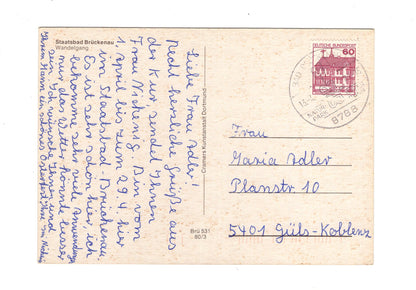 Staatsbad Brückenau
Wandelgang
Liebe Frau Adler!
Recht herzliche Grüße aus
der Kur sendet Ihnen
Frau
Bin vom
1. april bis zum 29. 4. hier
im Staatsbad-Brückenau.
Es ist sehr schön hier, ich
bekomme sehr viele Anwendungen
nur das Wetter könnte besser
sein. Ich wünsche Ihnen und
Ihrem Mann ein schönes Osterfest Ihre
Cramers Kunstanstalt Dortmund
Brü 531
80/3
DEUTSCHE BUNDESPOST
60
8788
Frau
Maria Adler
Planstr. 10
5401 Güls-Koblenz